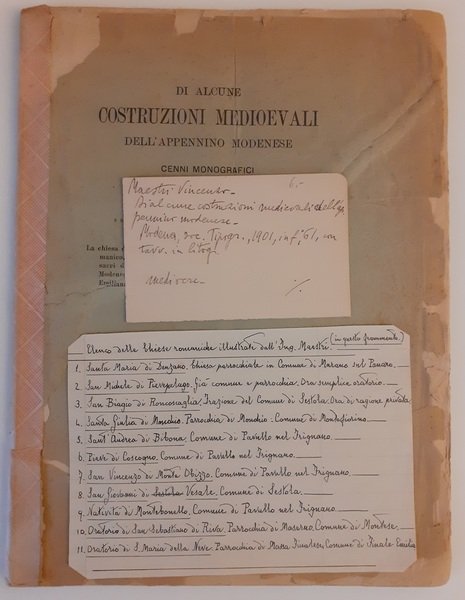 DI ALCUNE
COSTRUZIONI MEDIOEVALI
DELL'APPENNINO MODENESE
CENNI MONOGRAFICI
La chiesa d
manico,
sacri d
Modene
Emilian
6,-
Maestri Vincenzo-
Di alcune costruzioni medievali dell'ap-
pennino modenese-
Modena, soc. Tipogr., 1901, in f., 61, con
tavv. in litog.
mediocre-
Elenco delle Chiese romaniche illustrate dall'Ing. Maestri (in questo frammento)
1. Santa Maria di Denzano. Chiesa parrocchiale in Comune di Marano sul Panaro.
2. San Michele di Pievepelago. Già comune e parrocchia. Ora semplice oratorio.
3. San Biagio di Roncosaglia, frazione del Comune di Sestola. Ora di ragione privata
4. Santa Giulia di Monchio. Parrocchia di Monchio. Comune di Montefiorino
5. Sant'Andrea di Bibona, Comune di Pavullo nel Frignano.
6. Pieve di Coscogno. Comune di Pavullo nel Frignano.
7. San Vincenzo di Monte Obizzo. Comune di Pavullo nel Frignano.
8. San Giovanni di Sestola Vesale. Comune di Sestola.
9. Natività di Montebonello. Comune di Pavullo nel Frignano.
10. Oratorio di San Sebastiano di Riva. Parrocchia di Maserno. Comune di Montese.
11. Oratorio di S. Maria della Neve. Parrocchia di Massa Finalese, Comune di Finale Emilia